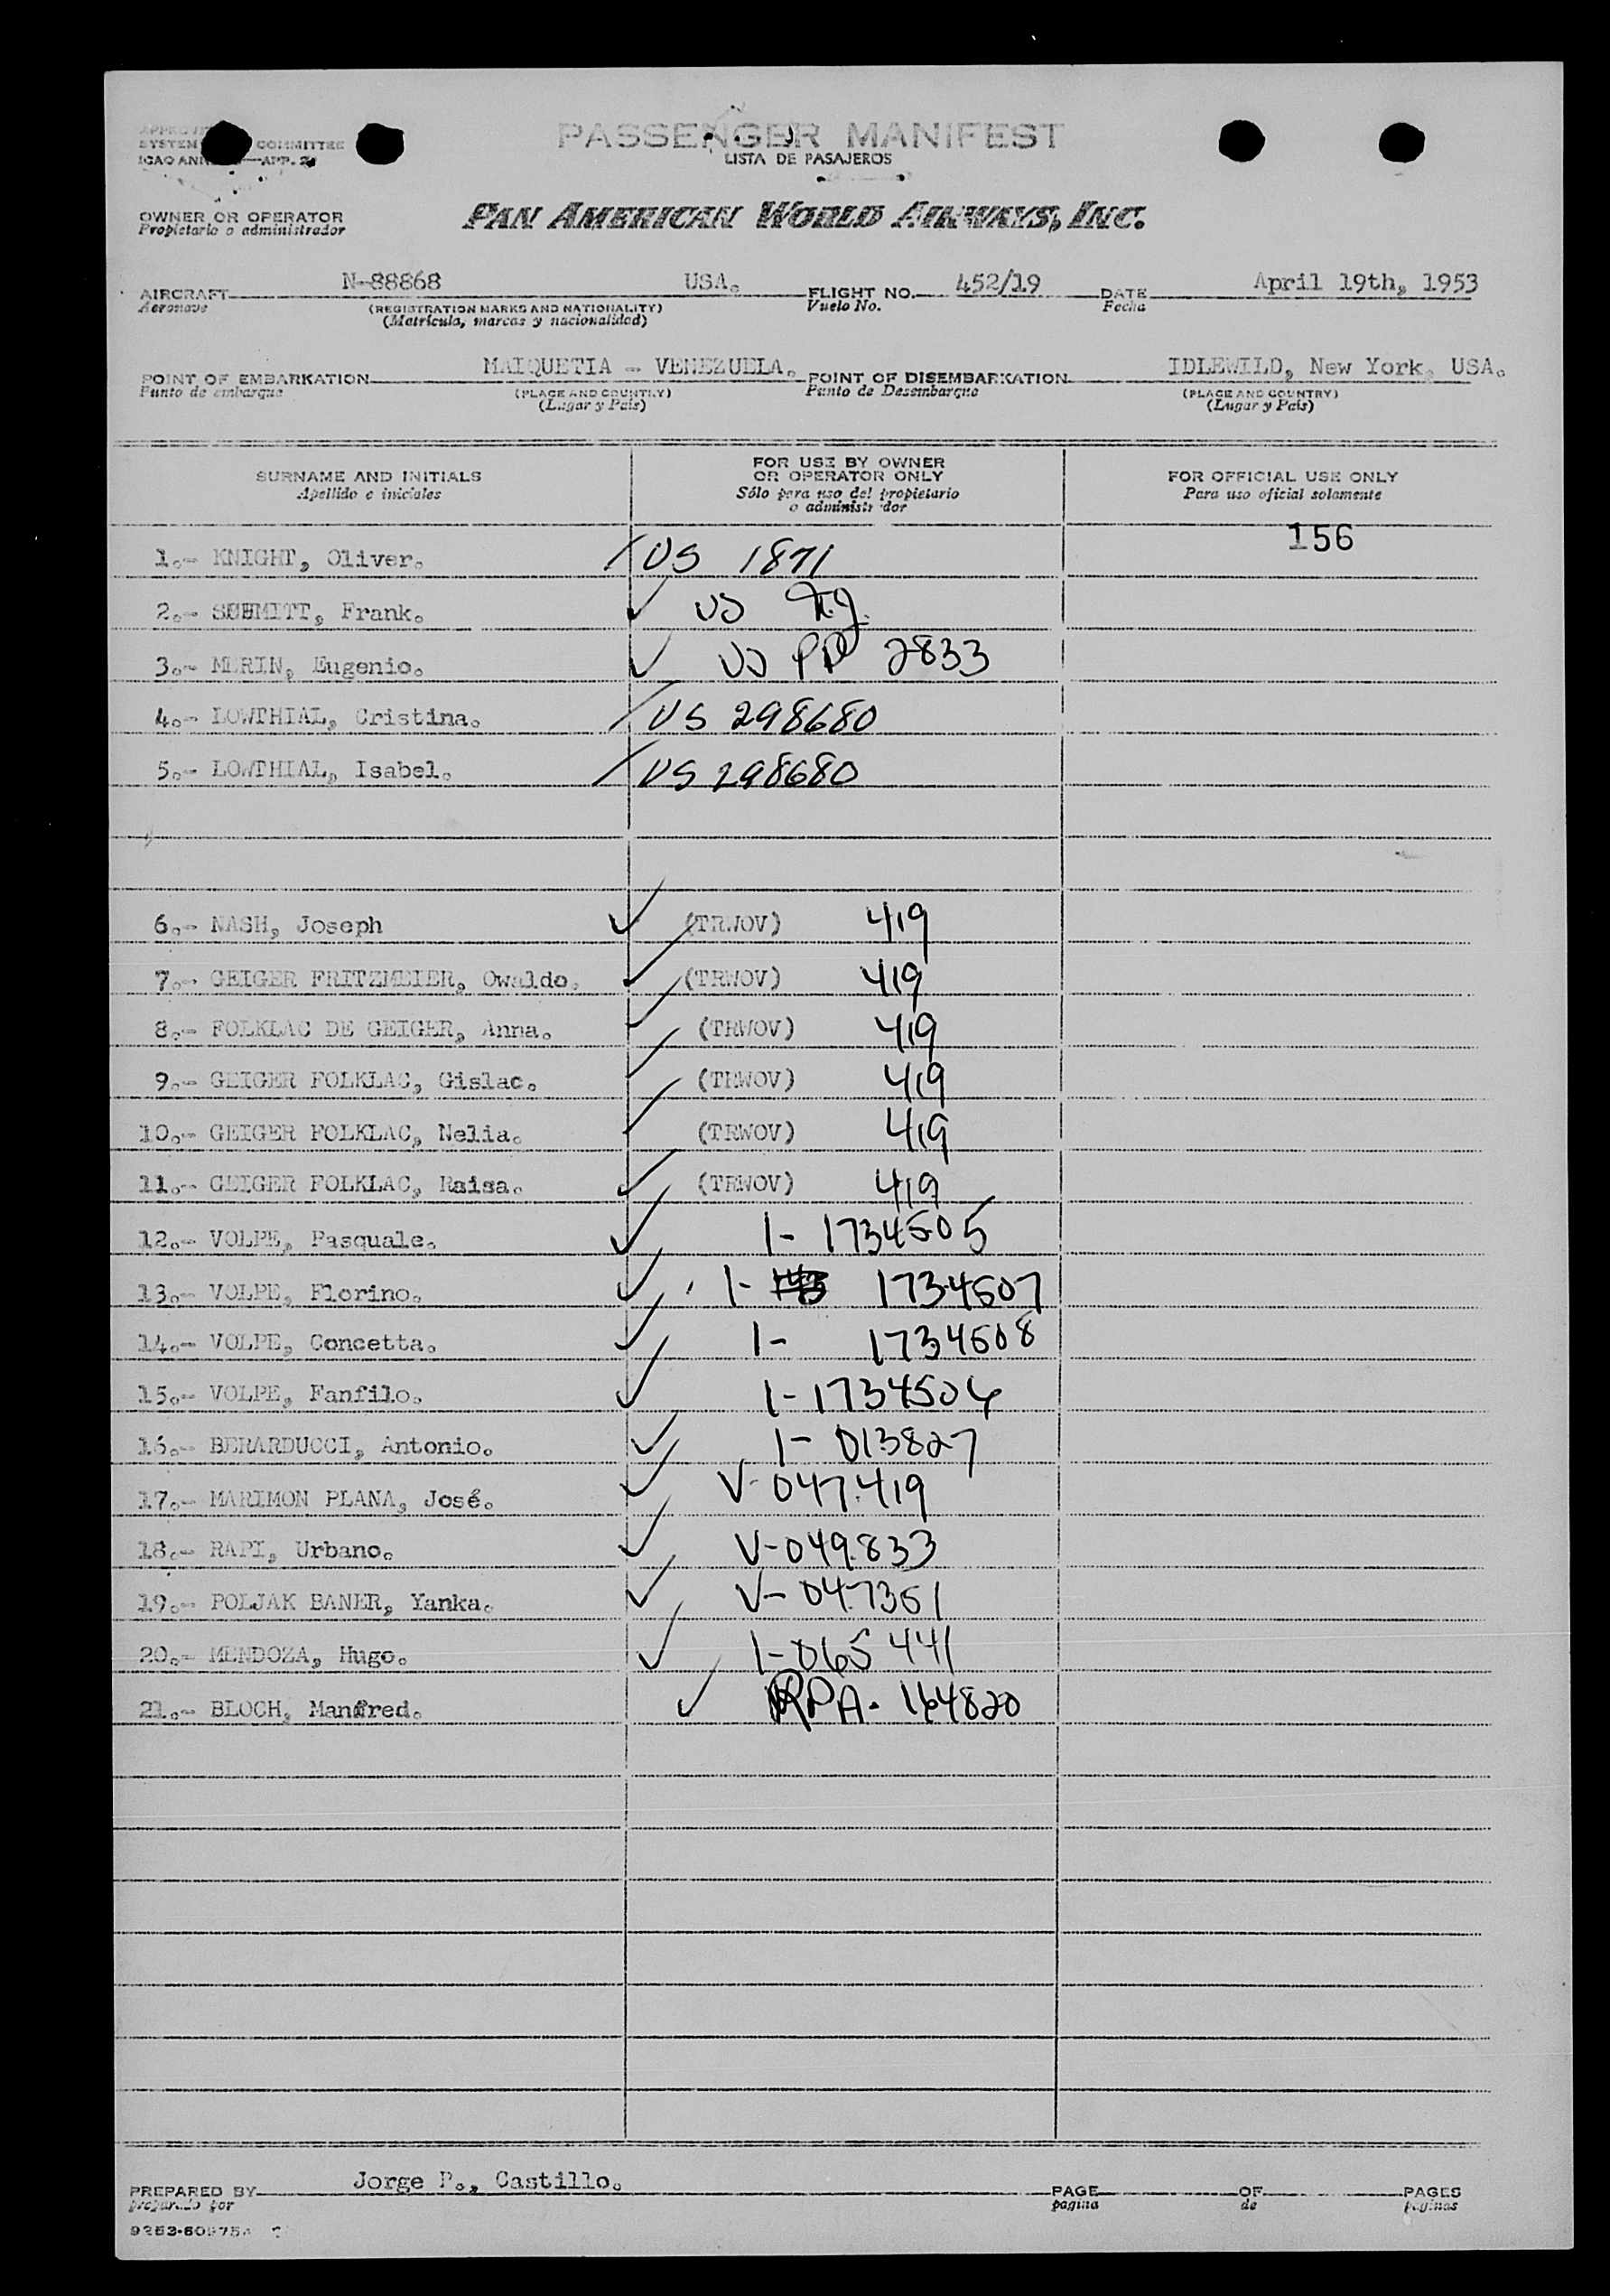 SYSTEM COMMITTEE
PASSENGER MANIFEST
LISTA DE PASAJEROS
OWNER OR OPERATOR
Propietario o administrador
PAN AMERICAN WORLD AIRWAYS, INC.
AIRCRAFT N-88868 USA. FLIGHT NO. 452/19 DATE April 19th, 1953
Aeronave (REGISTRATION MARKS AND NATIONALITY) Vuelo No. Fecha
(Matrícula, marcas y nacionalidad)
POINT OF EMBARKATION MAIQUETIA - VENEZUELA. POINT OF DISEMBARKATION IDLEWILD, New York, USA.
Punto de embarque (PLACE AND COUNTRY) Punto de Desembarque (PLACE AND COUNTRY)
(Lugar y País) (Lugar y País)
SURNAME AND INITIALS FOR USE BY OWNER OR OPERATOR ONLY FOR OFFICIAL USE ONLY
Apellido e iniciales Sólo para uso del propietario o administrador Para uso oficial solamente
156
1.- KNIGHT, Oliver. US 1871
2.- SCHMITT, Frank. US
3.- MERIN, Eugenio. US PP 2833
4.- LOWTHIAL, Cristina. US 298680
5.- LOWTHIAL, Isabel. US 298680
6.- NASH, Joseph (TRWOV) 419
7.- GEIGER FRITZMEIER, Owaldo. (TRWOV) 419
8.- FOLKLAC DE GEIGER, Anna. (TRWOV) 419
9.- GEIGER FOLKLAC, Gislac. (TRWOV) 419
10.- GEIGER FOLKLAC, Nelia. (TRWOV) 419
11.- GEIGER FOLKLAC, Raisa. (TRWOV) 419
12.- VOLPE, Pasquale. I- 1734505
13.- VOLPE, Florino. I- 1734507
14.- VOLPE, Concetta. I- 1734508
15.- VOLPE, Fanfilo. I-1734506
16.- BERARDUCCI, Antonio. I- 013827
17.- MARIMON PLANA, José. V-047.419
18.- RAPI, Urbano. V-049.833
19.- POLJAK BANER, Yanka. V-047351
20.- MENDOZA, Hugo. I-065 441
21.- BLOCH, Manfred. RPA- 164820
PREPARED BY Jorge P., Castillo. PAGE OF PAGES
preparado por pagina de paginas